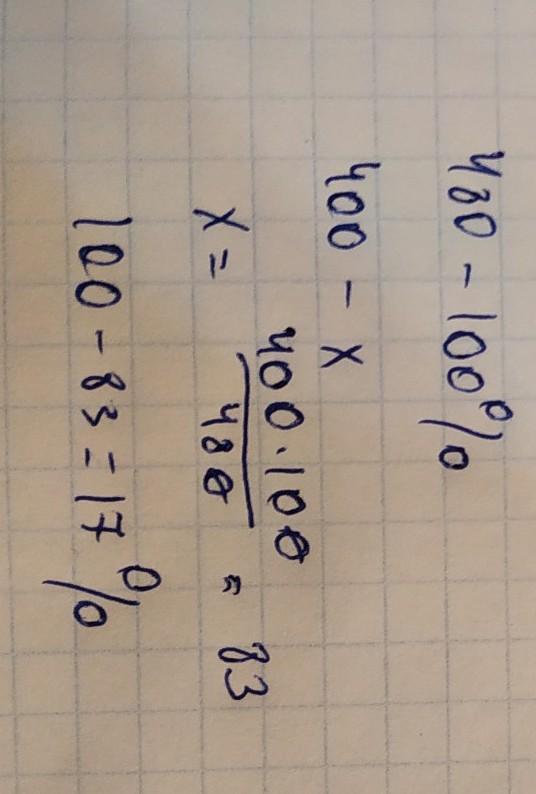 480 - 100%
400 - x
x = 400·100 / 480 = 83
100 - 83 = 17%